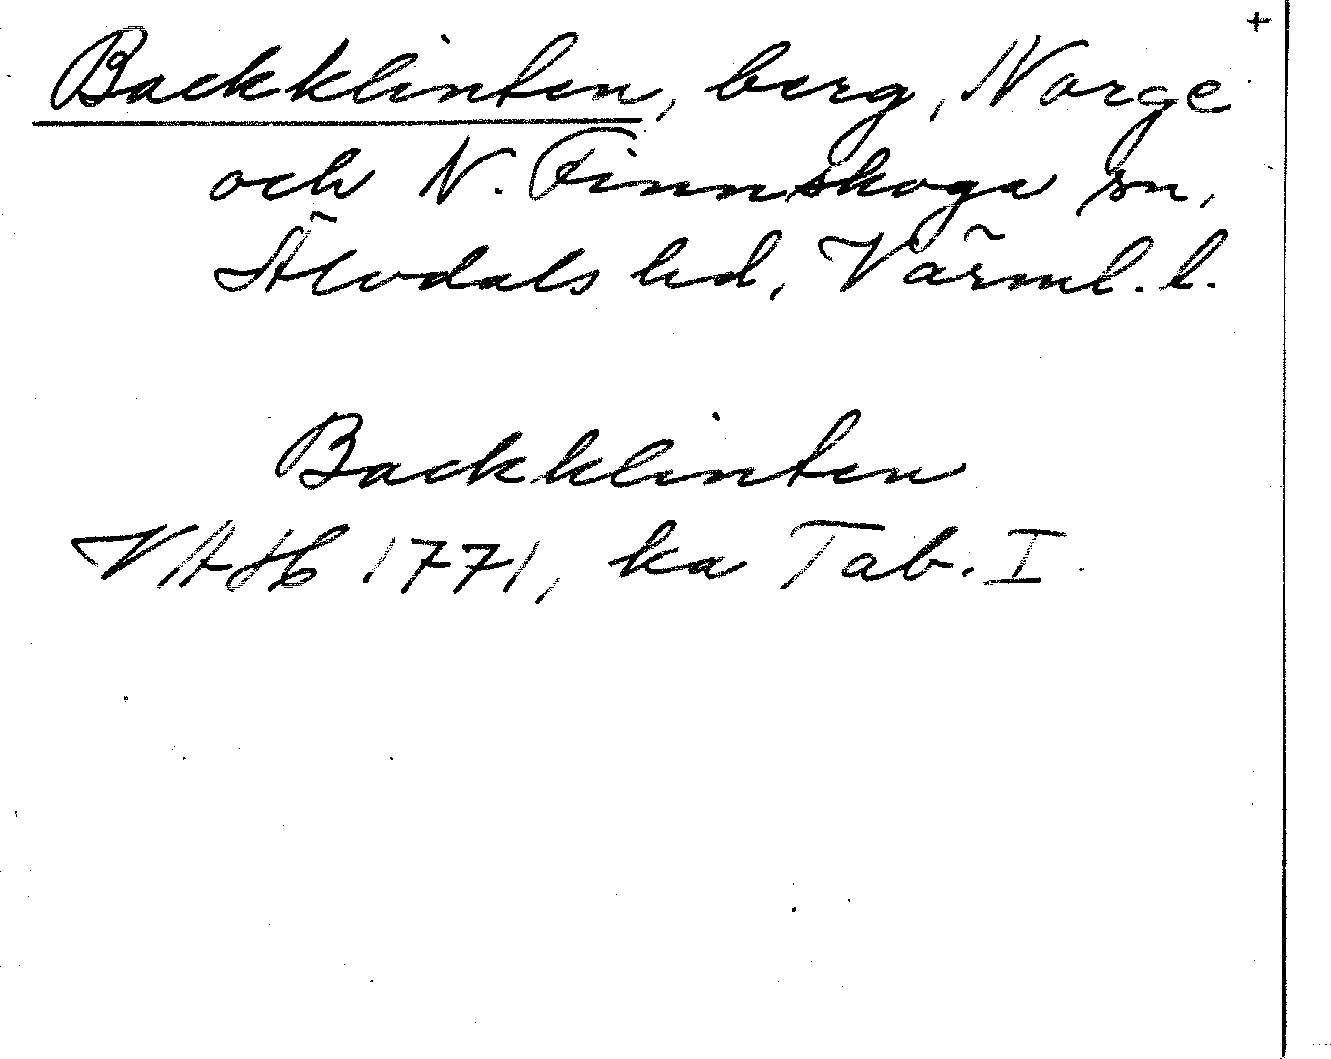 +
Backklinten, berg, Norge
och N. Finnskoga sn,
Älvdals hd, Värml. l.
Backklinten
VAH 1771, ka Tab. I